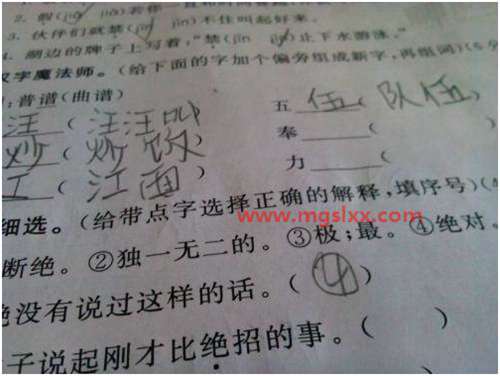 2. 假(jiǎ jià)若你一直和时间赛跑
3. 伙伴们就禁(jīn jìn)不住叫起好来。
4. 湖边的牌子上写着,“禁(jīn jìn)止下水游泳。”
汉字魔法师。(给下面的字加个偏旁组成新字,再组词)(6分
:普谱(曲谱) 五 伍 ( 队伍 )
汪 ( 汪汪叫 奉 (
炒 ( 炒饭 ) 力 (
工 ( 江面 )
细选。(给带点字选择正确的解释,填序号)(4
www.mgslxx.com
断绝。②独一无二的。③极;最。④绝对。
没有说过这样的话。( ④ )
子说起刚才比绝招的事。( )